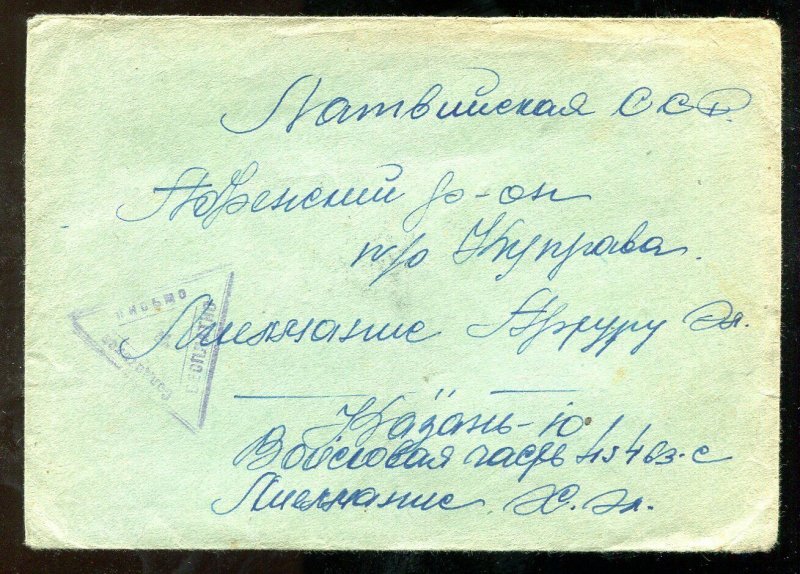 Латвийская ССР.
Абренский р-он
п/о Куправа.
Лиелманис Артуру Эл.
Казань-10
Войсковая часть 45463-с
Лиелманис Э. Эл.
письмо
бесплатно